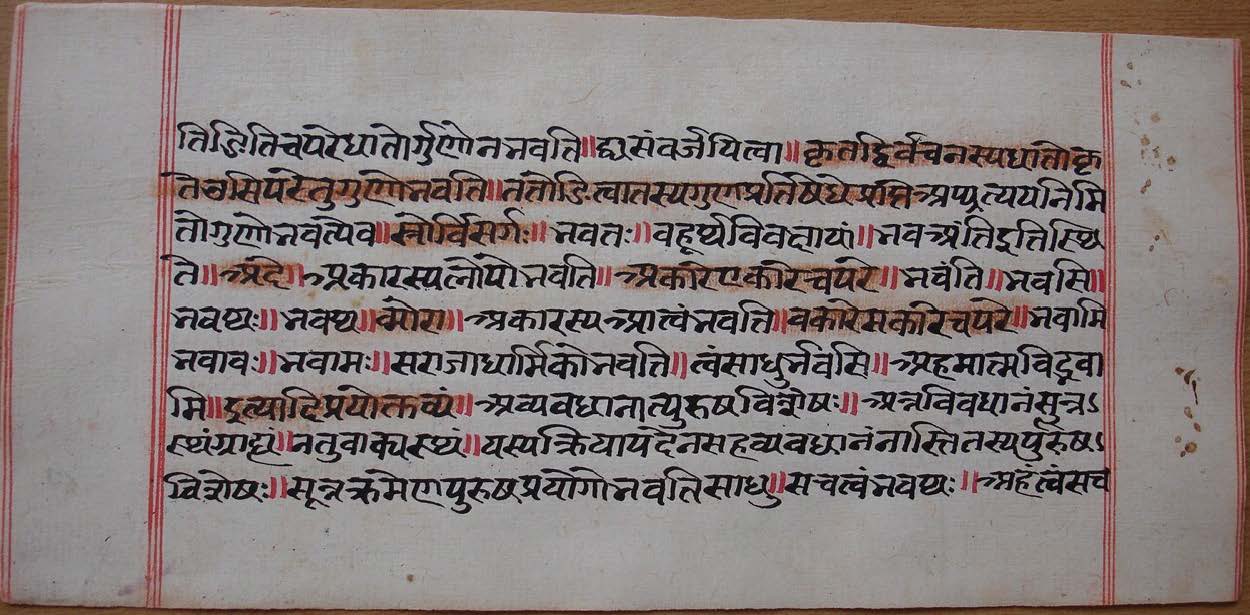 तिङितिचपरेधातोर्गुणोनभवति॥द्युसंवर्जयित्वा॥कृतद्विर्वचनस्यधातोकृ
तेउसिपरेस्तुगुणोभवति॥ततोङित्वातस्यगुणप्रतिषेधेप्राप्तेअप्प्रत्ययनिमि
तोगुणोभवत्यैव॥स्रोर्विसर्गः॥भवतः॥वहूर्थविवक्षायां॥भवअंतिइतिस्थि
ते॥अदे॥अकारस्यलोपोभवति॥अकारेएकारेचपरे॥भवंति॥भवसि॥
भवथः॥भवथ॥व्मोरा॥अकारस्यआत्वंभवति॥वकारेमकारेचपरे॥भवामि
भवावः॥भवामः॥सराजाधार्मिकोभवति॥त्वंसाधुर्भवसि॥अहमात्मविद्भवा
मि॥इत्यादिप्रयोक्तव्यं॥अव्यवधानात्पुरुषविशेषः॥अत्रविवधानंसूत्रऽ
स्थंग्राह्यं॥नतुवाक्यस्थं॥यस्यक्रियापदेनसहव्यवधानंनास्तितस्यपुरुषऽ
विशेषः॥सूत्रक्रमेणपुरुषप्रयोगोभवतिसाधु॥सचत्वंभवथः॥अहंत्वंसच